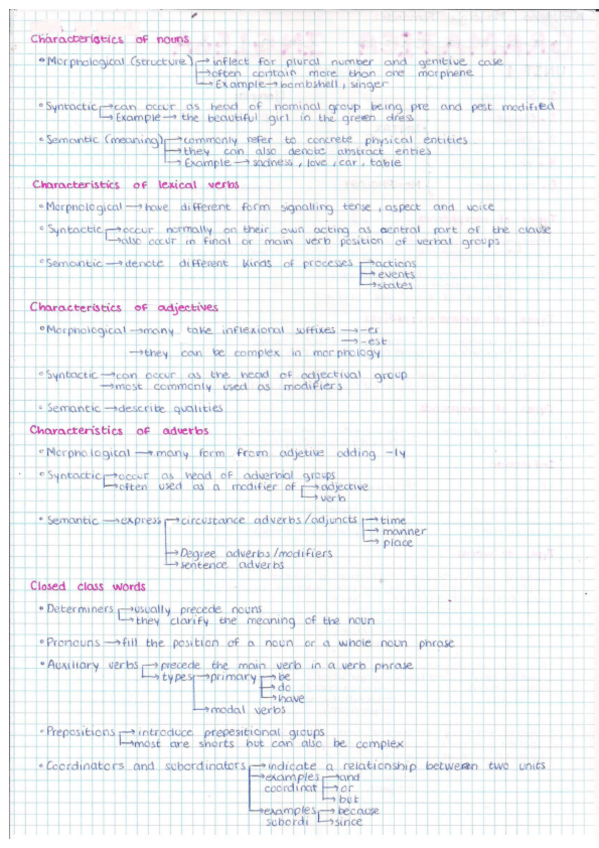 Characteristics of nouns
• Morphological (structure) → inflect for plural number and genitive case
→ often contain more than one morphene
→ Example → bombshell, singer
• Syntactic → can occur as head of nominal group being pre and post modified
→ Example → the beautiful girl in the green dress
• Semantic (meaning) → commonly refer to concrete physical entities
→ they can also denote abstract enties
→ Example → sadness, love, car, table
Characteristics of lexical verbs
• Morphological → have different form signalling tense, aspect and voice
• Syntactic → occur normally on their own acting as central part of the clause
→ also occur in final or main verb position of verbal groups
• Semantic → denote different kinds of processes → actions
→ events
→ states
Characteristics of adjectives
• Morphological → many take inflexional suffixes → -er
→ -est
→ they can be complex in morphology
• Syntactic → can occur as the head of adjectival group
→ most commonly used as modifiers
• Semantic → describe qualities
Characteristics of adverbs
• Morphological → many form from adjetive adding -ly
• Syntactic → occur as head of adverbial groups
→ often used as a modifier of → adjective
→ verb
• Semantic → express → circustance adverbs/adjuncts → time
→ manner
→ place
→ Degree adverbs/modifiers
→ sentence adverbs
Closed class words
• Determiners → usually precede nouns
→ they clarify the meaning of the noun
• Pronouns → fill the position of a noun or a whole noun phrase
• Auxiliary verbs → precede the main verb in a verb phrase
→ types → primary → be
→ do
→ have
→ modal verbs
• Prepositions → introduce prepesitional groups
→ most are shorts but can also be complex
• Coordinators and subordinators → indicate a relationship between two units
→ examples → and
coordinat → or
→ but
→ examples → because
subordi → since